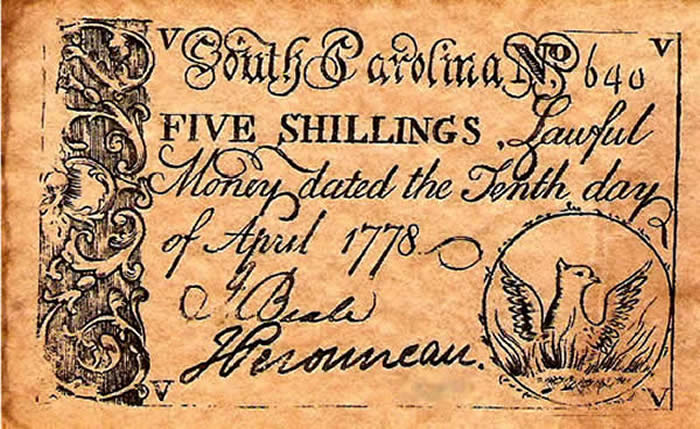 V South Carolina, No 640 V
FIVE SHILLINGS, Lawful
Money, dated the Tenth day
of April 1778
J Beale
H Peronneau.
V V